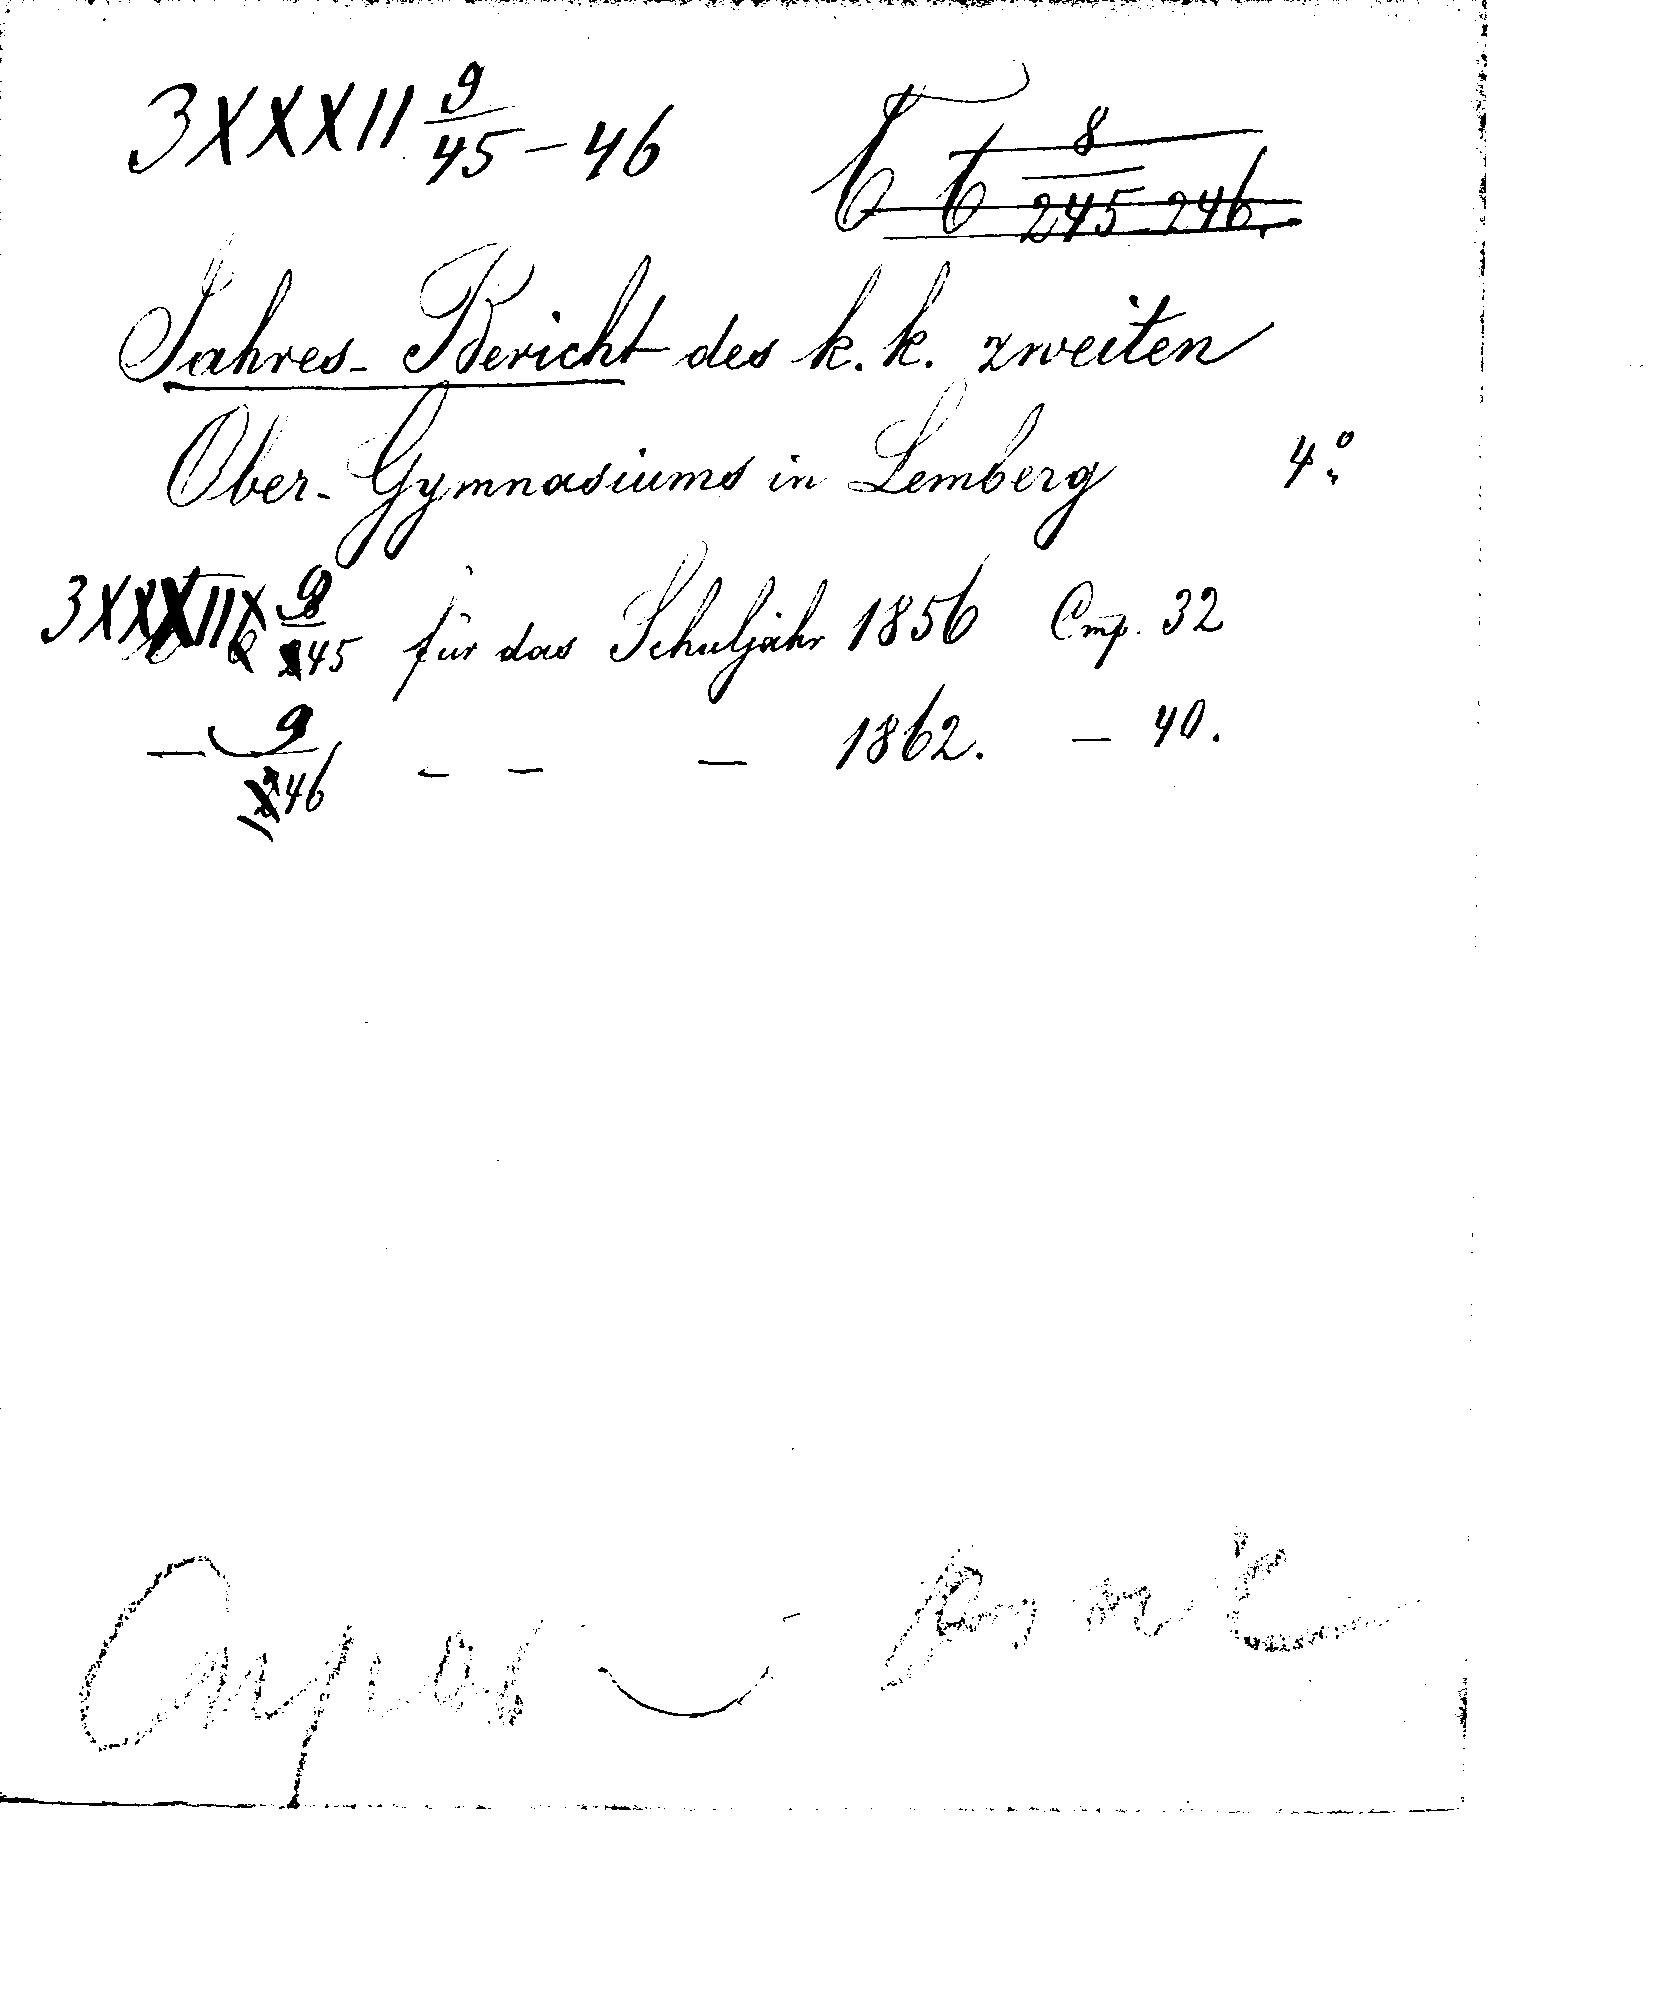 3XXXII 9/45-46 Ъ Ъ 8/245-246.
Jahres-Bericht des k. k. zweiten
Ober-Gymnasiums in Lemberg 4°
3XXXII 9/45 für das Schuljahr 1856 Стр. 32
— 9/46 — — — 1862. — 40.